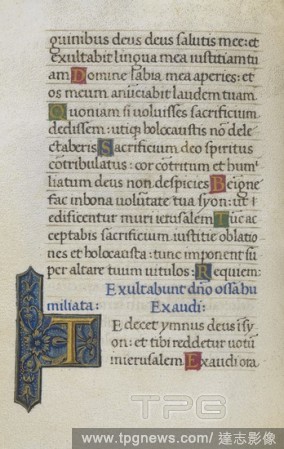 guinibus deus deus salutis mee: et
exultabit lingua mea iustitiam tu
am Domine labia mea aperies: et
os meum anūciabit laudem tuam
Quoniam si voluisses sacrificium
dedissem: utiqȝ holocaustis nō dele
ctaberis Sacrificium deo spiritus
cōtribulatus: cor cōtritum et humi
liatum deus non despicies Beīgne
fac in bona volūtate tua syon: ut
edificentur muri ierusalem Tūc ac
ceptabis sacrificium iustitie oblatio
nes et holocausta: tunc imponent su
per altare tuum vitulos: Requiem:
Exultabunt dn̄o ossa hu
miliata: Exaudi:
Te decet ymnus deus i sy
on: et tibi reddetur votū
in ierusalem Exaudi ora
TPG
www.tpgnews.com/達志影像